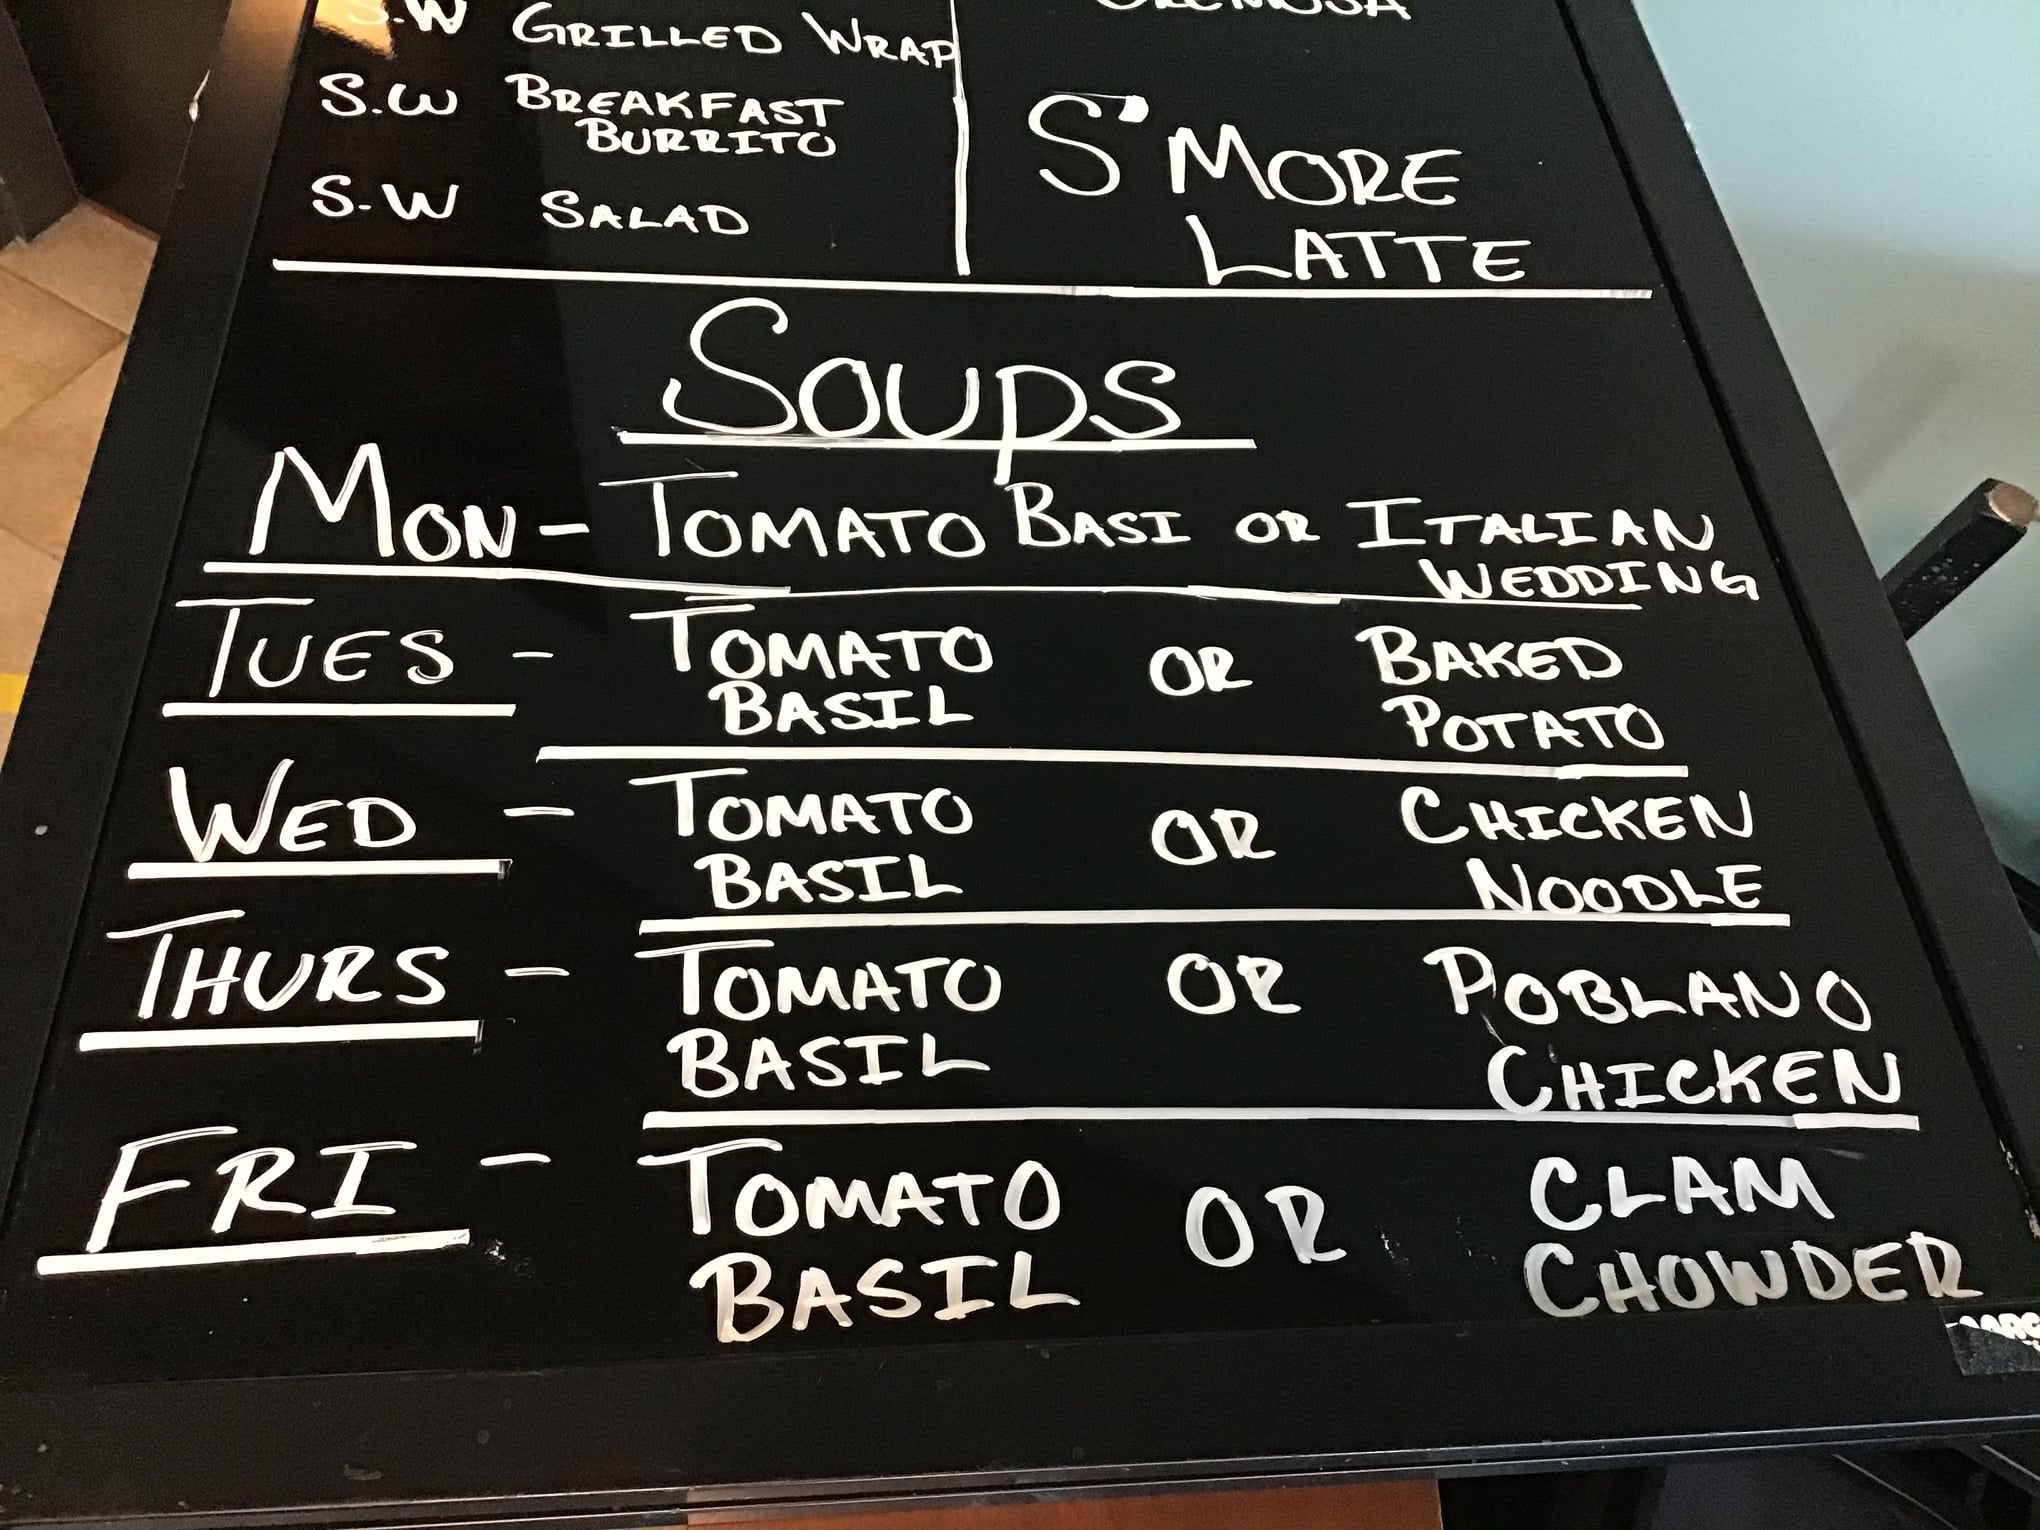 S.W GRILLED WRAP
S.W BREAKFAST
BURRITO
S.W SALAD
S'MORE
LATTE
SOUPS
MON - TOMATO BASI OR ITALIAN
WEDDING
TUES - TOMATO OR BAKED
BASIL POTATO
WED - TOMATO OR CHICKEN
BASIL NOODLE
THURS - TOMATO OR POBLANO
BASIL CHICKEN
FRI - TOMATO OR CLAM
BASIL CHOWDER